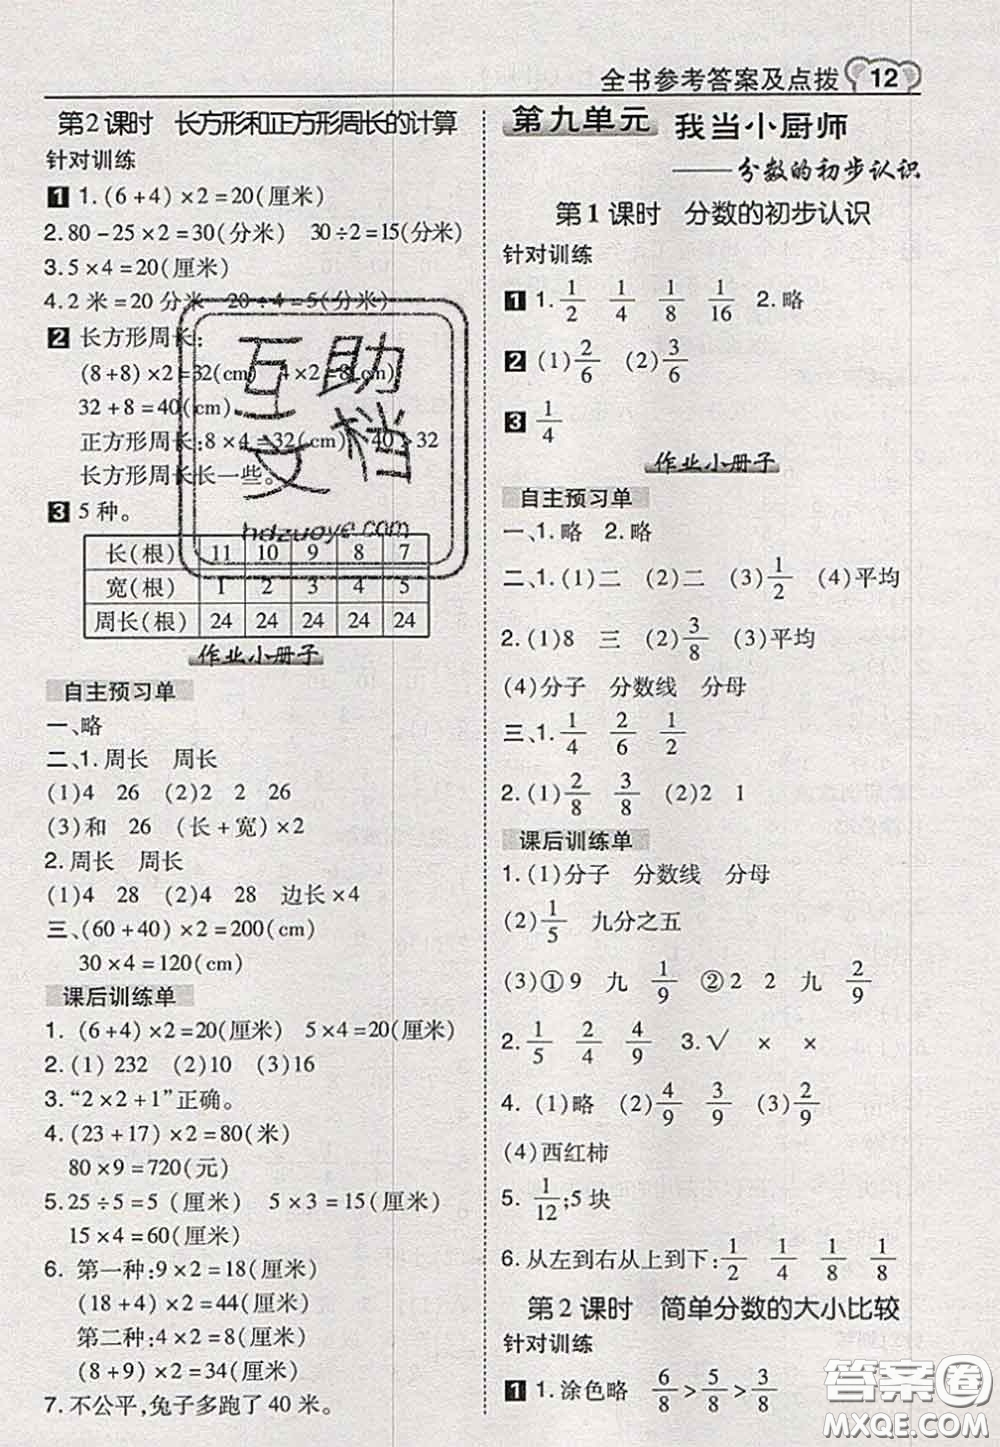 全书参考答案及点拨 12
第2课时 长方形和正方形周长的计算
针对训练
1 1. (6+4)×2=20(厘米)
2. 80-25×2=30(分米) 30÷2=15(分米)
3. 5×4=20(厘米)
4. 2米=20分米 20÷4=5(分米)
2 长方形周长:
(8+8)×2=32(cm) 4×2=8(cm)
32+8=40(cm)
正方形周长:8×4=32(cm) 40>32
长方形周长长一些。
3 5种。
长(根) 11 10 9 8 7
宽(根) 1 2 3 4 5
周长(根) 24 24 24 24 24
作业小册子
自主预习单
一、略
二、1. 周长 周长
(1)4 26 (2)2 2 26
(3)和 26 (长+宽)×2
2. 周长 周长
(1)4 28 (2)4 28 边长×4
三、(60+40)×2=200(cm)
30×4=120(cm)
课后训练单
1. (6+4)×2=20(厘米) 5×4=20(厘米)
2. (1)232 (2)10 (3)16
3. “2×2+1”正确。
4. (23+17)×2=80(米)
80×9=720(元)
5. 25÷5=5(厘米) 5×3=15(厘米)
15×4=60(厘米)
6. 第一种:9×2=18(厘米)
(18+4)×2=44(厘米)
第二种:4×2=8(厘米)
(8+9)×2=34(厘米)
7. 不公平,兔子多跑了40米。
第九单元 我当小厨师
——分数的初步认识
第1课时 分数的初步认识
针对训练
1 1. 1/2 1/4 1/8 1/16 2. 略
2 (1)2/6 (2)3/6
3 1/4
作业小册子
自主预习单
一、1. 略 2. 略
二、1. (1)二 (2)二 (3)1/2 (4)平均
2. (1)8 三 (2)3/8 (3)平均
(4)分子 分数线 分母
三、1. 1/4 2/6 1/2
2. (1)2/8 3/8 (2)2 1
课后训练单
1. (1)分子 分数线 分母
(2)1/5 九分之五
(3)①9 九 1/9 ②2 2 九 2/9
2. 1/5 2/4 4/9 3. √ × ×
4. (1)略 (2)4/9 3/9 (3)2/9
(4)西红柿
5. 1/12;5块
6. 从左到右从上到下:1/2 1/4 1/8 1/8
第2课时 简单分数的大小比较
针对训练
1 1. 涂色略 6/8>5/8>3/8
互助文档
hdzuoye.com
答案圈
MXQE.COM